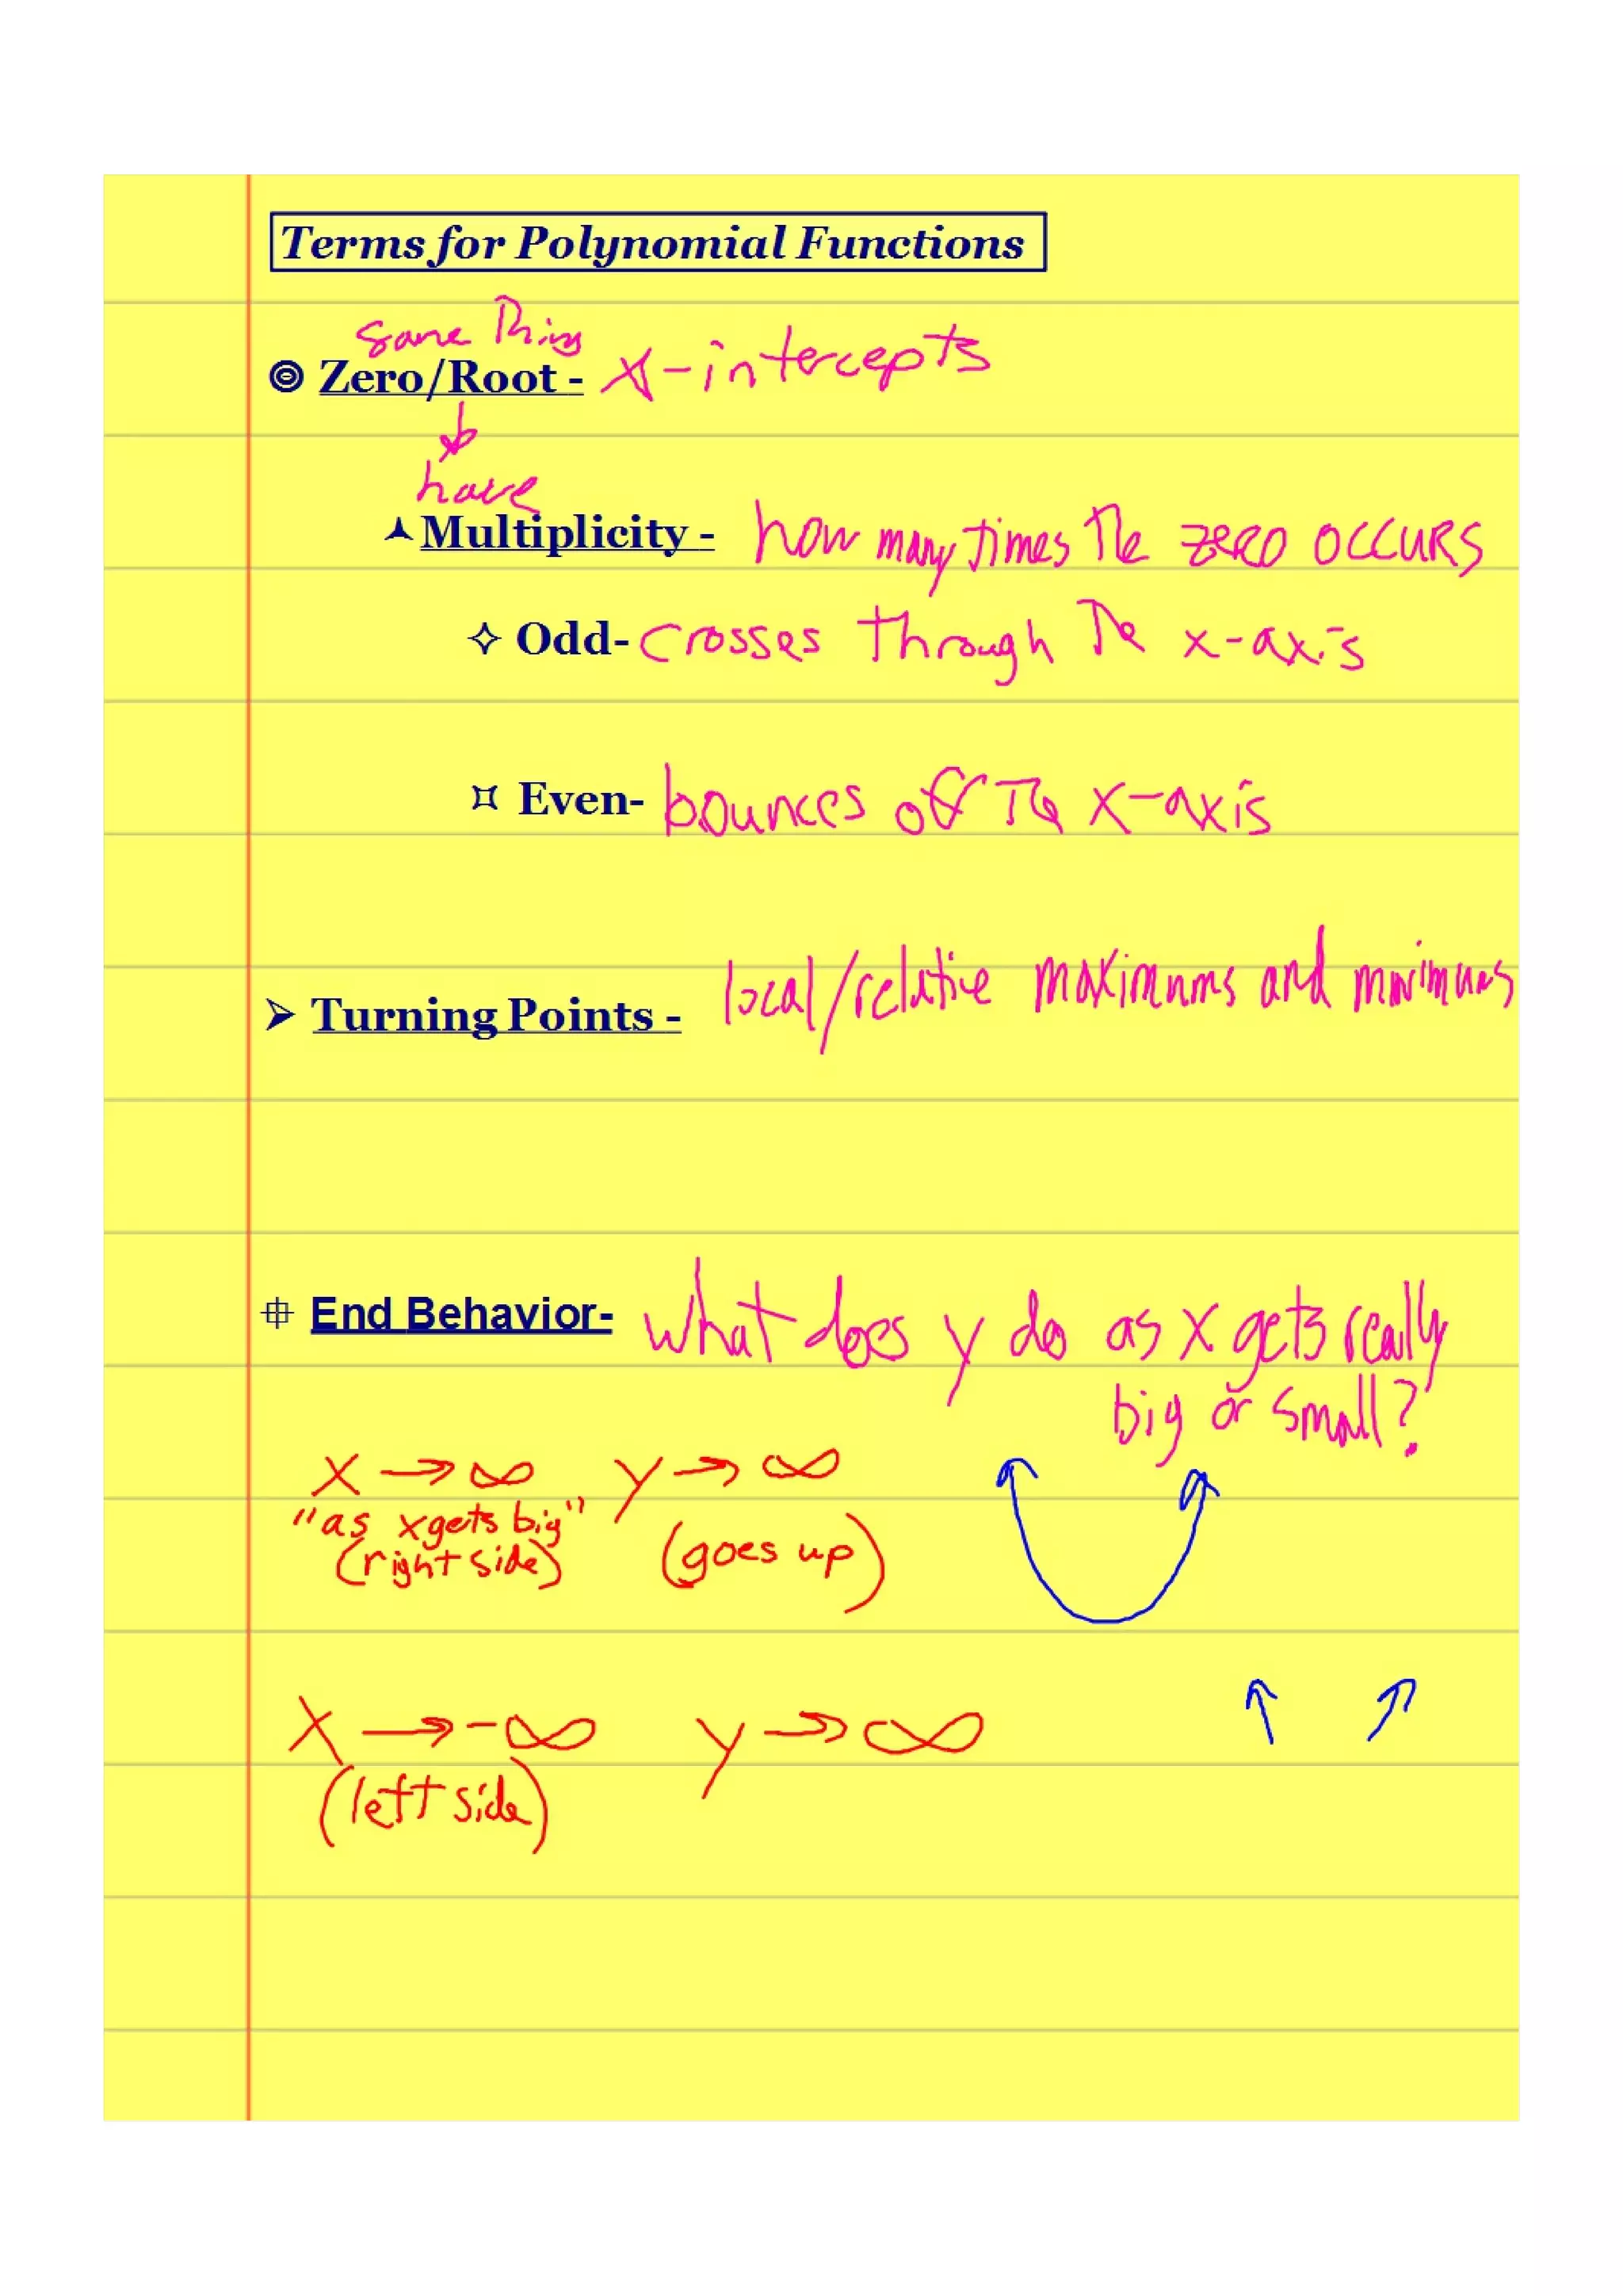 Terms for Polynomial Functions
same thing
Zero/Root - x-intercepts
have
Multiplicity - how many times the zero occurs
Odd- crosses through the x-axis
Even- bounces off the x-axis
Turning Points - local/relative maximums and minimums
End Behavior- what does y do as x gets really
big or small?
x → ∞ y → ∞
"as x gets big"
(right side) (goes up)
x → -∞ y → ∞
(left side)